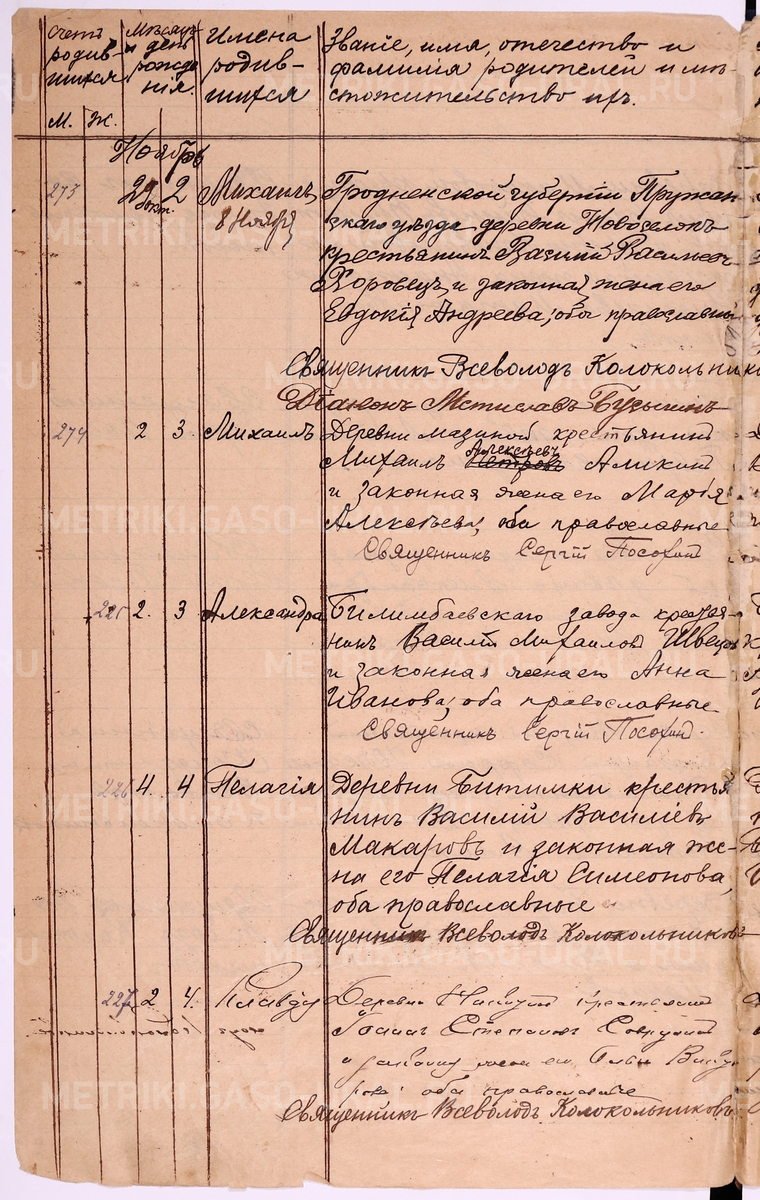 Счетъ родив- шихся
Мѣсяцъ и день рожде нія.
Имена родив- шихся
Званіе, имя, отечество и
фамилія родителей и мѣ-
стожительство ихъ.
М. Ж.
Ноябрь
273 29 окт. 2 Михаилъ Гродненской губерніи Пружан
8 Ноября скаго уѣзда деревни Новоселокъ
крестьянинъ Василій Васильев
Хоровецъ и законная жена его
Евдокія Андреева, оба православны
Священникъ Всеволодъ Колокольник
Діаконъ Мстиславъ
274 2 3. Михаилъ Деревни Мазиной крестьянинъ
Михаилъ Петровъ Алексѣевъ Аликинъ
и законная жена его Марія
Алексѣева, оба православные
Священникъ Сергій
225 2. 3 Александра Билимбаевскаго завода крестья-
нинъ Василій Михаиловъ Швецовъ
и законная жена его Анна
Иванова, оба православные
Священникъ Сергій
226 4. 4 Пелагія Деревни Битимки крестья
нинъ Василій Василіевъ
Макаровъ и законная же-
на его Пелагія Симеонова,
оба православные
Священникъ Всеволодъ Колокольниковъ
227 2 4. Клавдія Деревни крестьянинъ
Іоаннъ Степановъ
и законная жена его
оба православные
Священникъ Всеволодъ Колокольниковъ
METRIKI.GASO-URAL.RU